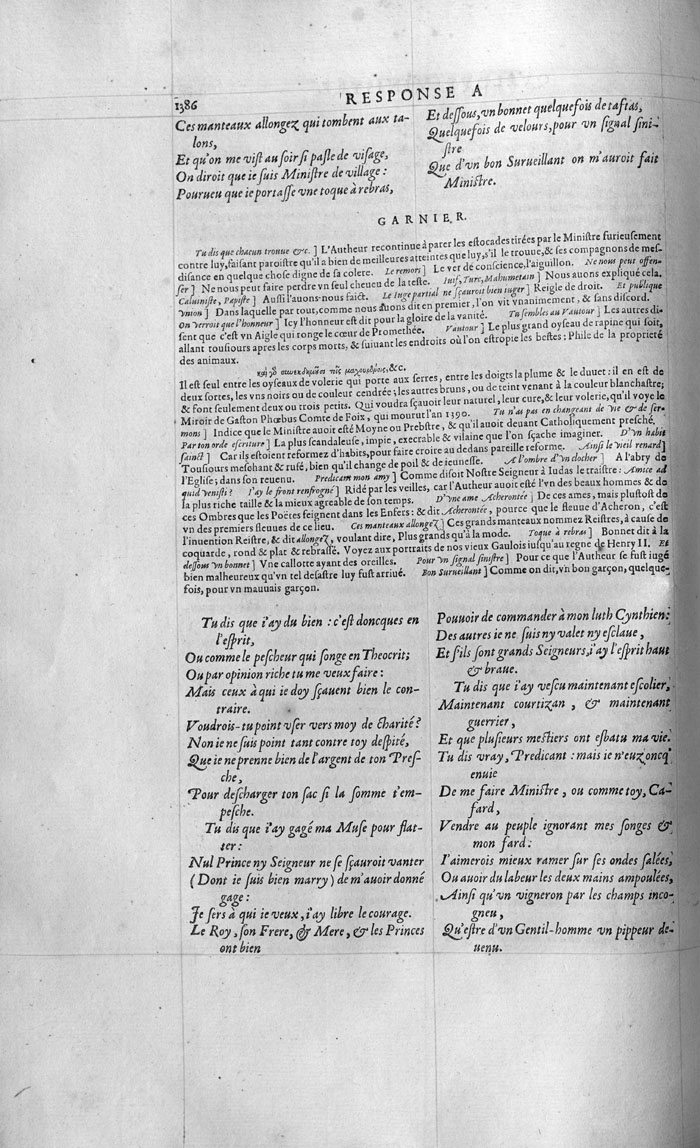 1386
RESPONSE A
Ces manteaux allongez qui tombent aux ta-
lons,
Et qu'on me vist au soir si pasle de visage,
On diroit que ie suis Ministre de village:
Pourueu que ie portasse vne toque à rebras,
Et dessous, vn bonnet quelquefois de taftas,
Quelquefois de velours, pour vn signal sini-
stre
Que d'vn bon Surueillant on m'auroit fait
Ministre.
GARNIER.
Tu dis que chacun tronue &c. ] L'Autheur recontinue à parer les estocades tirées par le Ministre furieusement
contre luy, faisant paroistre qu'il a bien de meilleures atteintes que luy, s'il le trouue, & ses compagnons de mes-
disance en quelque chose digne de sa colere. Le remors ] Le ver de conscience, l'aiguillon. Ne nous peut offen-
ser ] Ne nous peut faire perdre vn seul cheueu de la teste. Iuif, Turc, Mahumetain ] Nous auons expliqué cela.
Caluiniste, Papiste ] Aussi l'auons-nous faict. Le Iuge partial ne sçauroit bien iuger ] Reigle de droit. Et publique
vnion ] Dans laquelle par tout, comme nous auons dit en premier, l'on vit vnanimement, & sans discord.
On verroit que l'honneur ] Icy l'honneur est dit pour la gloire de la vanité. Tu sembles au Vautour ] Les autres di-
sent que c'est vn Aigle qui ronge le cœur de Promethée. Vautour ] Le plus grand oyseau de rapine qui soit,
allant tousiours apres les corps morts, & suiuant les endroits où l'on estropie les bestes: Phile de la proprieté
des animaux.
&c.
Il est seul entre les oyseaux de volerie qui porte aux serres, entre les doigts la plume & le duuet: il en est de
deux sortes, les vns noirs ou de couleur cendrée; les autres bruns, ou de teint venant à la couleur blanchastre;
& font seulement deux ou trois petits. Qui voudra sçauoir leur naturel, leur cure, & leur volerie, qu'il voye le
Miroir de Gaston Phœbus Comte de Foix, qui mourut l'an 1390. Tu n'as pas en changeant de vie & de ser-
mons ] Indice que le Ministre auoit esté Moyne ou Prebstre, & qu'il auoit deuant Catholiquement presché.
Par ton orde escriture ] La plus scandaleuse, impie, execrable & vilaine que l'on sçache imaginer. D'vn habit
sainct ] Car ils estoient reformez d'habits, pour faire croire au dedans pareille reforme. Ainsi le vieil renard ]
Tousiours meschant & rusé, bien qu'il change de poil & de ieunesse. A l'ombre d'vn clocher ] A l'abry de
l'Eglise; dans son reuenu. Predicam mon amy ] Comme disoit Nostre Seigneur à Iudas le traistre: Amice ad
quid venisti? I'ay le front renfrogné ] Ridé par les veilles, car l'Autheur auoit esté l'vn des beaux hommes & de
la plus riche taille & la mieux agreable de son temps. D'vne ame Acherontée ] De ces ames, mais plustost de
ces Ombres que les Poëtes feignent dans les Enfers: & dit Acherontée, pource que le fleuue d'Acheron, c'est
vn des premiers fleuues de ce lieu. Ces manteaux allongez ] Ces grands manteaux nommez Reistres, à cause de
l'inuention Reistre, & dit allongez, voulant dire, Plus grands qu'à la mode. Toque à rebras ] Bonnet dit à la
coquarde, rond & plat & rebrassé. Voyez aux portraits de nos vieux Gaulois iusqu'au regne de Henry II. Et
dessous vn bonnet ] Vne callotte ayant des oreilles. Pour vn signal sinistre ] Pour ce que l'Autheur se fust iugé
bien malheureux qu'vn tel desastre luy fust arriué. Bon Surueillant ] Comme on dit, vn bon garçon, quelque-
fois, pour vn mauuais garçon.
Tu dis que i'ay du bien : c'est doncques en
l'esprit,
Ou comme le pescheur qui songe en Theocrit;
Ou par opinion riche tu me veux faire:
Mais ceux à qui ie doy sçauent bien le con-
traire.
Voudrois-tu point vser vers moy de charité?
Non ie ne suis point tant contre toy despité,
Que ie ne prenne bien de l'argent de ton Pres-
che,
Pour descharger ton sac si la somme t'em-
pesche.
Tu dis que i'ay gagé ma Muse pour flat-
ter:
Nul Prince ny Seigneur ne se sçauroit vanter
(Dont ie suis bien marry) de m'auoir donné
gage:
Je sers à qui ie veux, i'ay libre le courage.
Le Roy, son Frere, & Mere, & les Princes
ont bien
Pouuoir de commander à mon luth Cynthien:
Des autres ie ne suis ny valet ny esclaue,
Et s'ils sont grands Seigneurs, i'ay l'esprit haut
& braue.
Tu dis que i'ay vescu maintenant escolier,
Maintenant courtizan, & maintenant
guerrier,
Et que plusieurs mestiers ont esbatu ma vie.
Tu dis vray, Predicant : mais ie n'euz oncq'
enuie
De me faire Ministre, ou comme toy, Ca-
fard,
Vendre au peuple ignorant mes songes &
mon fard:
I'aimerois mieux ramer sur ses ondes salées,
Ou auoir du labeur les deux mains ampoulées,
Ainsi qu'vn vigneron par les champs inco-
gneu,
Qu'estre d'vn Gentil-homme vn pippeur de-
uenu.